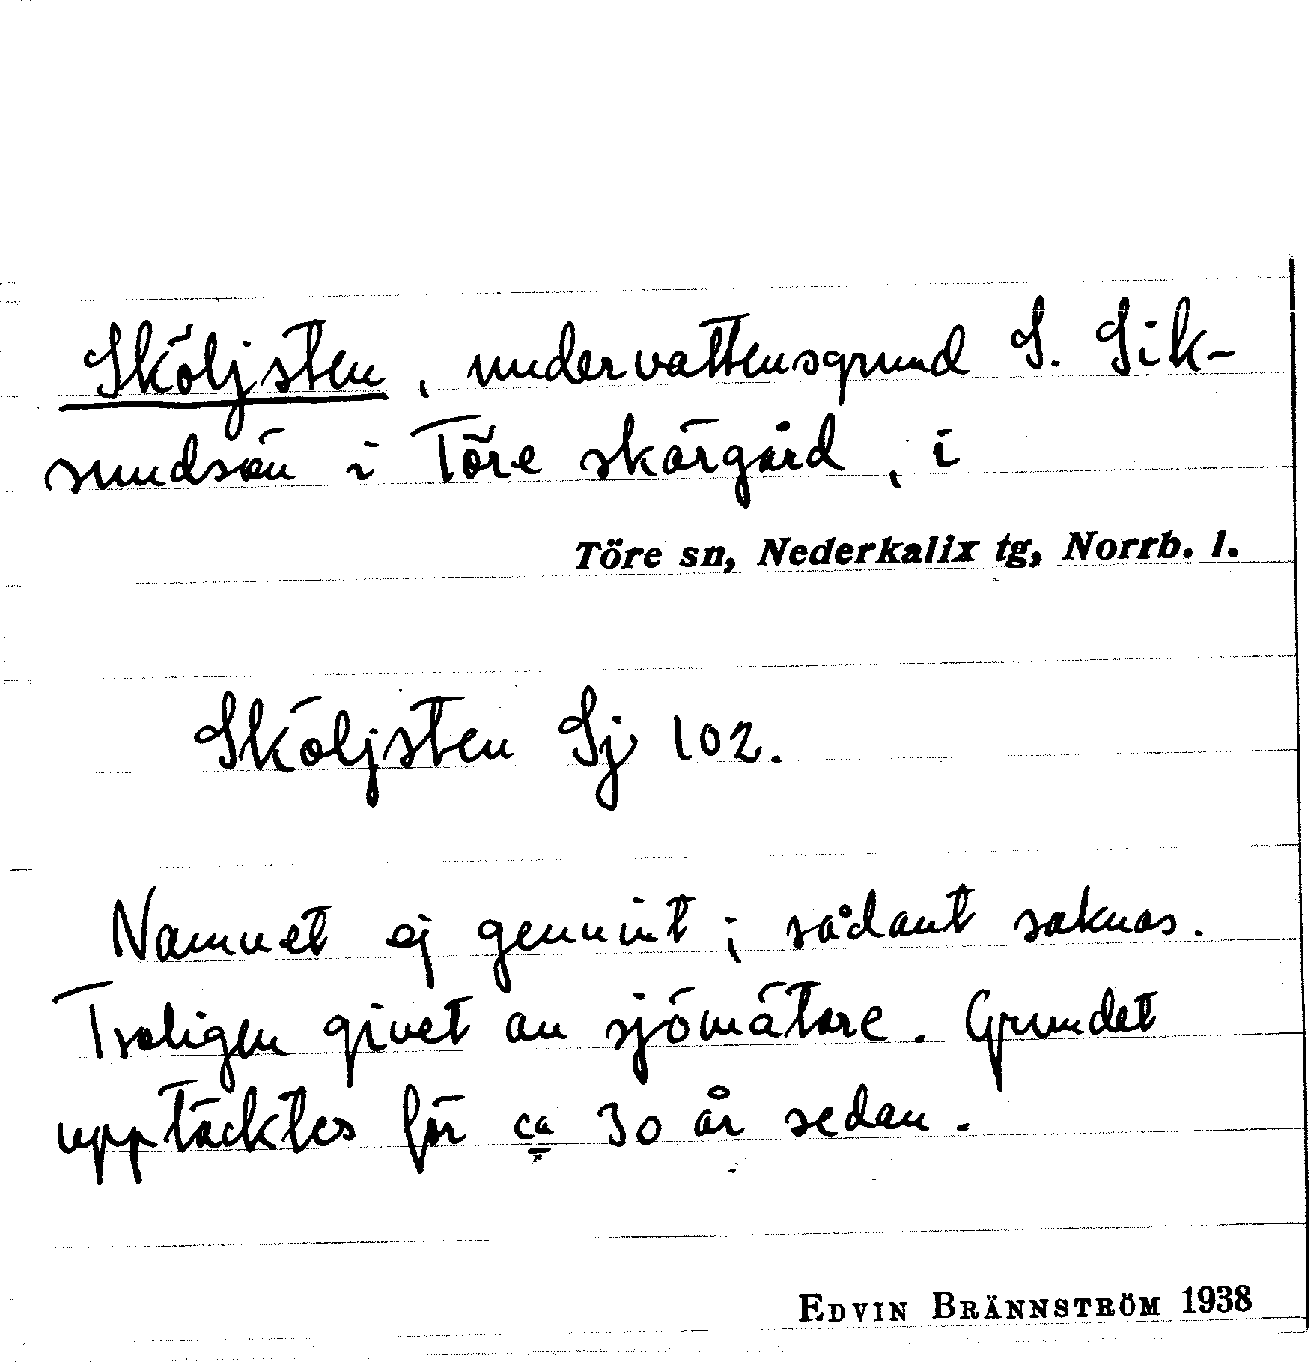 Sköljsten, undervattensgrund S. Sik-
sundsön i Töre skärgård, i
Töre sn, Nederkalix tg, Norrb. l.
Sköljsten Sj 102.
Namnet ej genuint; sådant saknas.
Troligen givet av sjömätare. Grundet
upptäcktes för ca 30 år sedan.
EDVIN BRÄNNSTRÖM 1938